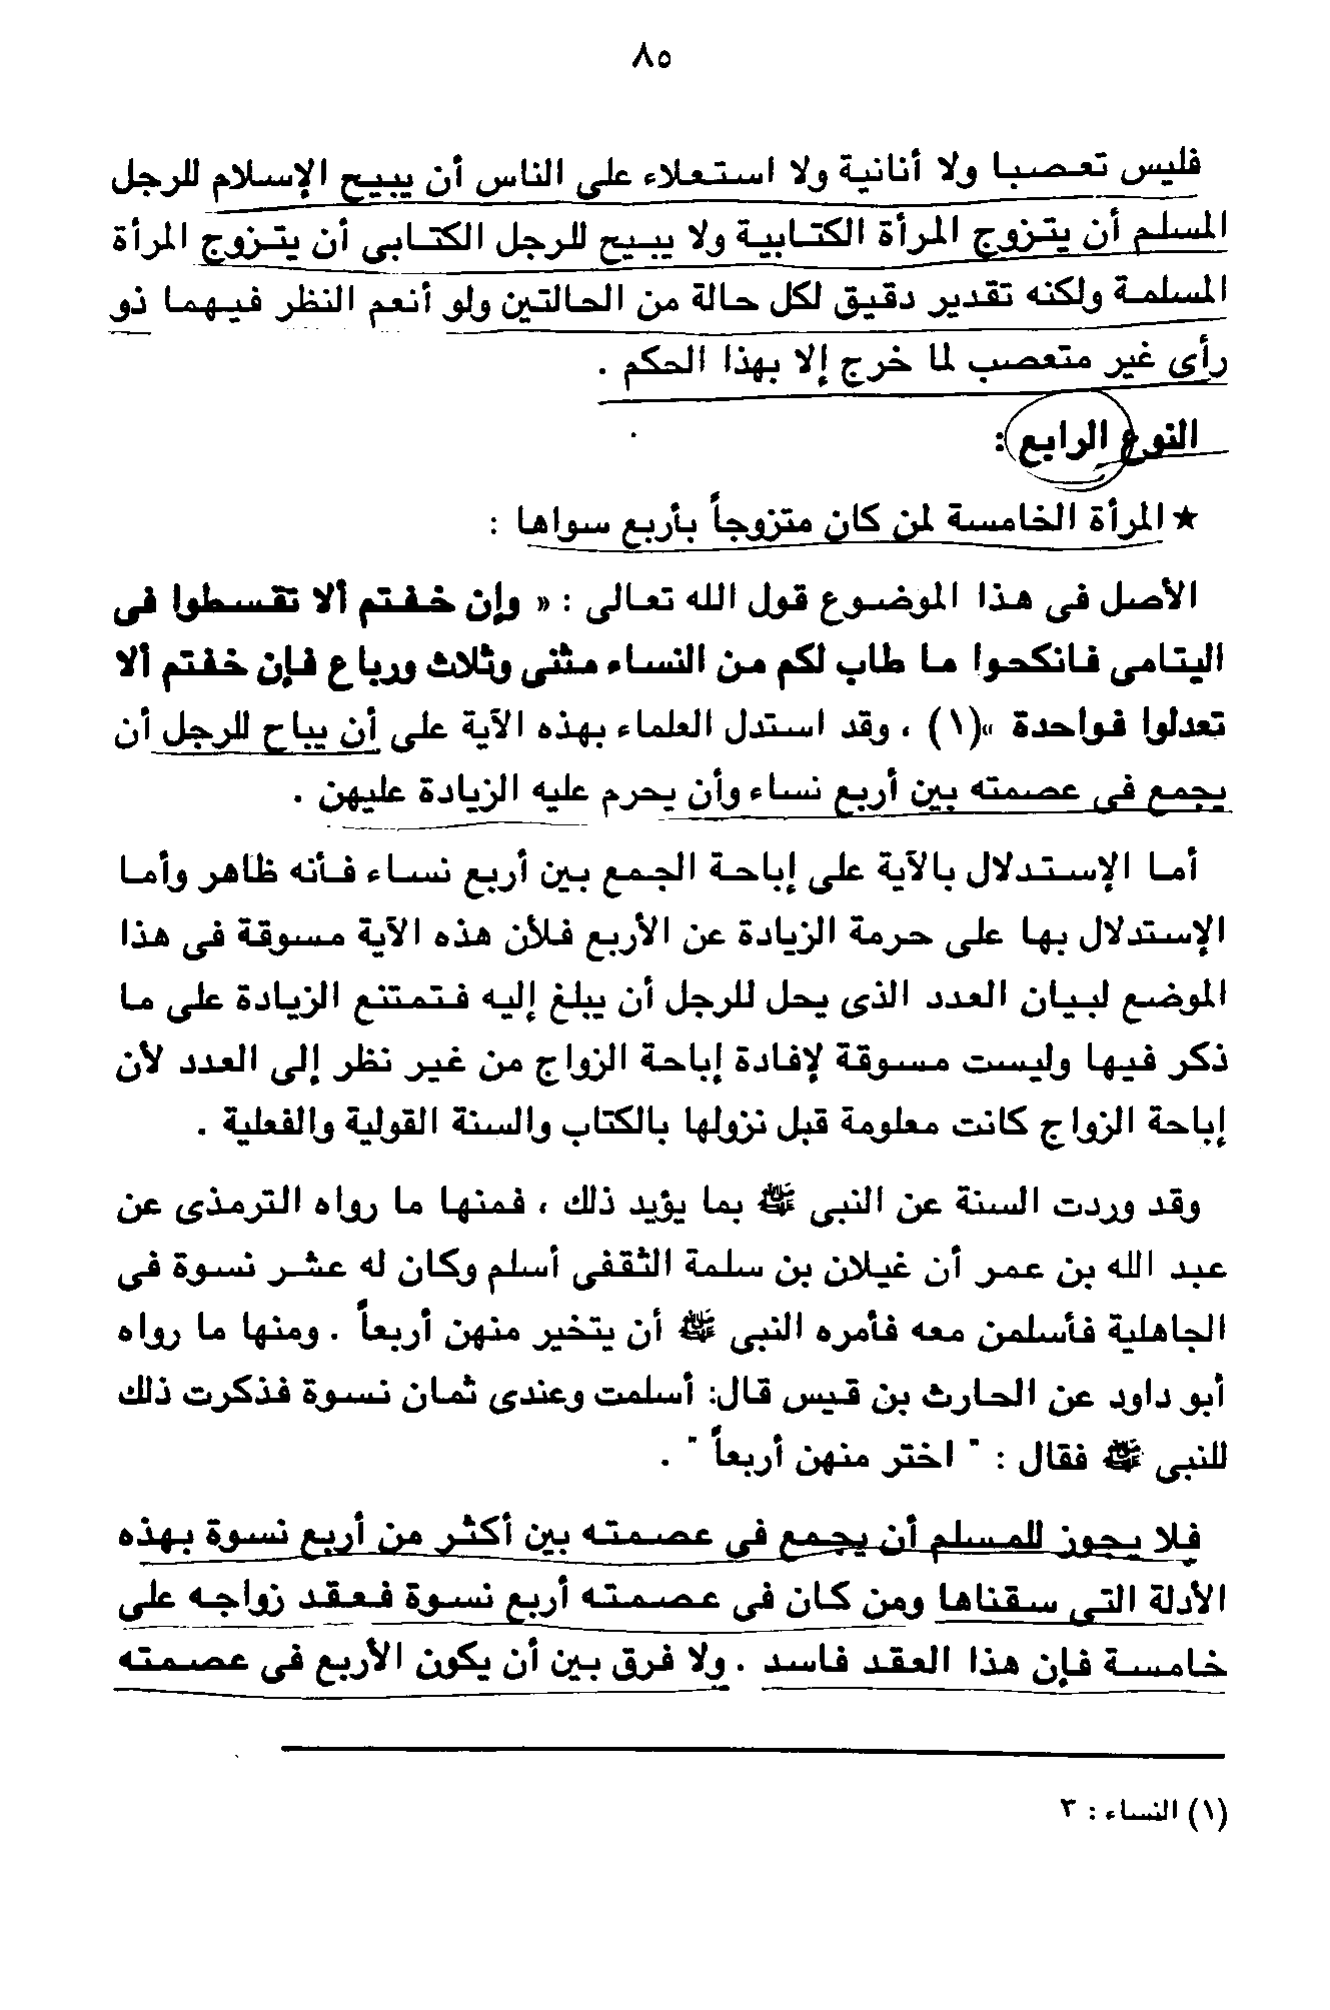 ٨٥
فليس تعصبا ولا أنانية ولا استعلاء على الناس أن يبيح الإسلام للرجل
المسلم أن يتزوج المرأة الكتابية ولا يبيح للرجل الكتابى أن يتزوج المرأة
المسلمة ولكنه تقدير دقيق لكل حالة من الحالتين ولو أنعم النظر فيهما ذو
رأى غير متعصب لما خرج إلا بهذا الحكم .
النوع الرابع :
★ المرأة الخامسة لمن كان متزوجاً بأربع سواها :
الأصل فى هذا الموضوع قول الله تعالى : « وإن خفتم ألا تقسطوا فى
اليتامى فانكحوا ما طاب لكم من النساء مثنى وثلاث ورباع فإن خفتم ألا
تعدلوا فواحدة »(١) ، وقد استدل العلماء بهذه الآية على أن يباح للرجل أن
يجمع فى عصمته بين أربع نساء وأن يحرم عليه الزيادة عليهن .
أما الإستدلال بالآية على إباحة الجمع بين أربع نساء فأنه ظاهر وأما
الإستدلال بها على حرمة الزيادة عن الأربع فلأن هذه الآية مسوقة فى هذا
الموضع لبيان العدد الذى يحل للرجل أن يبلغ إليه فتمتنع الزيادة على ما
ذكر فيها وليست مسوقة لإفادة إباحة الزواج من غير نظر إلى العدد لأن
إباحة الزواج كانت معلومة قبل نزولها بالكتاب والسنة القولية والفعلية .
وقد وردت السنة عن النبى ﷺ بما يؤيد ذلك ، فمنها ما رواه الترمذى عن
عبد الله بن عمر أن غيلان بن سلمة الثقفى أسلم وكان له عشر نسوة فى
الجاهلية فأسلمن معه فأمره النبى ﷺ أن يتخير منهن أربعاً . ومنها ما رواه
أبو داود عن الحارث بن قيس قال: أسلمت وعندى ثمان نسوة فذكرت ذلك
للنبى ﷺ فقال : " اختر منهن أربعاً " .
فلا يجوز للمسلم أن يجمع فى عصمته بين أكثر من أربع نسوة بهذه
الأدلة التى سقناها ومن كان فى عصمته أربع نسوة فعقد زواجه على
خامسة فإن هذا العقد فاسد . ولا فرق بين أن يكون الأربع فى عصمته
(١) النساء : ٣